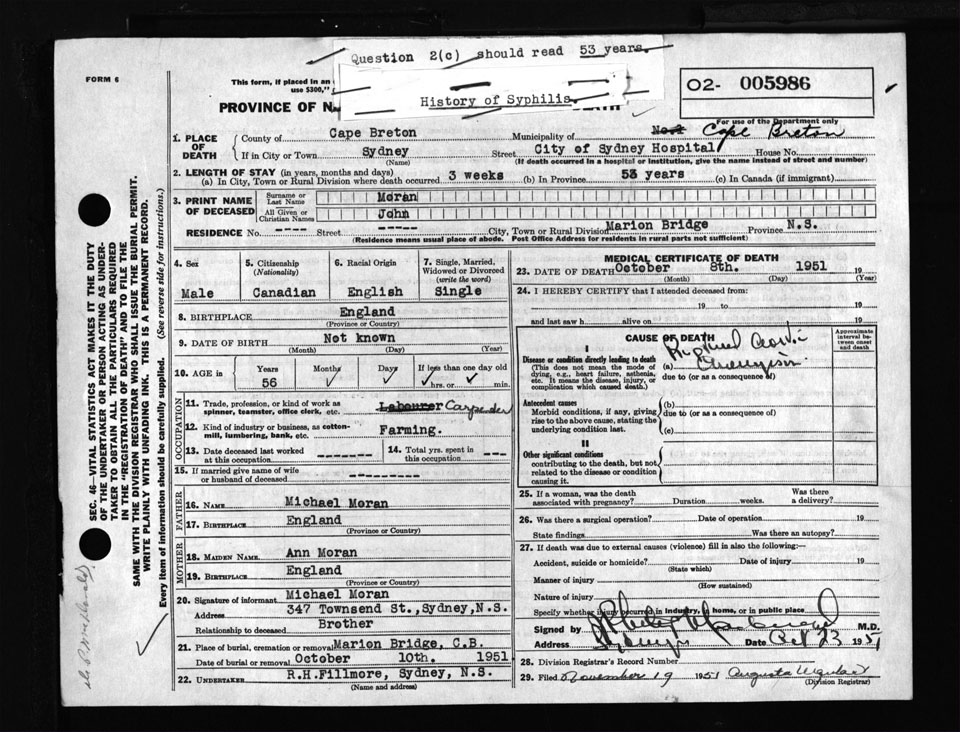 Question 2(c) should read 53 years.
FORM 6
This form, if placed in an
use $300,"
History of Syphilis.
O2- 005986
PROVINCE OF N
For use of the Department only
1. PLACE OF DEATH County of Cape Breton Municipality of Cape Breton
If in City or Town Sydney Street City of Sydney Hospital House No.
(Name) (If death occurred in a hospital or institution, give the name instead of street and number)
2. LENGTH OF STAY (in years, months and days)
(a) In City, Town or Rural Division where death occurred 3 weeks (b) In Province 53 years (c) In Canada (if immigrant)
3. PRINT NAME OF DECEASED Surname or Last Name Moran
All Given or Christian Names John
RESIDENCE No. ---- Street ----- City, Town or Rural Division Marion Bridge Province N.S.
(Residence means usual place of abode. Post Office Address for residents in rural parts not sufficient)
4. Sex Male
5. Citizenship (Nationality) Canadian
6. Racial Origin English
7. Single, Married, Widowed or Divorced (write the word) Single
8. BIRTHPLACE England
(Province or Country)
9. DATE OF BIRTH Not known
(Month) (Day) (Year)
10. AGE in Years Months Days If less than one day old
56 ✓ ✓ ✓ hrs. or ✓ min.
OCCUPATION
11. Trade, profession, or kind of work as spinner, teamster, office clerk, etc. Labourer Carpenter
12. Kind of industry or business, as cotton-mill, lumbering, bank, etc. Farming.
13. Date deceased last worked at this occupation ------- 14. Total yrs. spent in this occupation ---
15. If married give name of wife or husband of deceased -------
FATHER
16. NAME Michael Moran
17. BIRTHPLACE England
(Province or Country)
MOTHER
18. MAIDEN NAME Ann Moran
19. BIRTHPLACE England
(Province or Country)
20. Signature of informant Michael Moran
Address 347 Townsend St.,Sydney,N.S.
Relationship to deceased Brother
21. Place of burial, cremation or removal Marion Bridge, C.B.
Date of burial or removal October 10th. 1951
22. UNDERTAKER R.H.Fillmore, Sydney, N.S.
(Name and address)
MEDICAL CERTIFICATE OF DEATH
23. DATE OF DEATH October 8th. 1951 19
(Month) (Day) (Year)
24. I HEREBY CERTIFY that I attended deceased from:
19 to 19
and last saw h alive on 19
CAUSE OF DEATH
Approximate interval between onset and death
I
Disease or condition directly leading to death
(This does not mean the mode of dying, e.g., heart failure, asthenia, etc. It means the disease, injury, or complication which caused death.)
(a)
due to (or as a consequence of)
Antecedent causes
Morbid conditions, if any, giving rise to the above cause, stating the underlying condition last.
(b)
due to (or as a consequence of)
(c)
II
Other significant conditions
contributing to the death, but not related to the disease or condition causing it.
25. If a woman, was the death associated with pregnancy? Duration weeks. Was there a delivery?
26. Was there a surgical operation? Date of operation 19
State findings Was there an autopsy?
27. If death was due to external causes (violence) fill in also the following:—
Accident, suicide or homicide? Date of injury 19
(State which)
Manner of injury
(How sustained)
Nature of injury
Specify whether injury occurred in industry, home, or in public place
Signed by M.D.
Address Date Oct 23 1951
28. Division Registrar's Record Number
29. Filed November 19 1951 Augusta
(Division Registrar)
SEC. 46—VITAL STATISTICS ACT MAKES IT THE DUTY
OF THE UNDERTAKER OR PERSON ACTING AS UNDER-
TAKER TO OBTAIN ALL THE PARTICULARS REQUIRED
IN THE "REGISTRATION OF DEATH" AND TO FILE THE
SAME WITH THE DIVISION REGISTRAR WHO SHALL ISSUE THE BURIAL PERMIT.
WRITE PLAINLY WITH UNFADING INK. THIS IS A PERMANENT RECORD.
Every item of information should be carefully supplied. (See reverse side for instructions.)